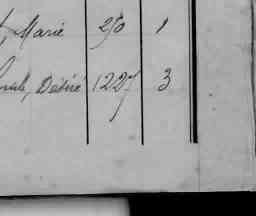 , Marie 250 1
, Désiré 1227 3